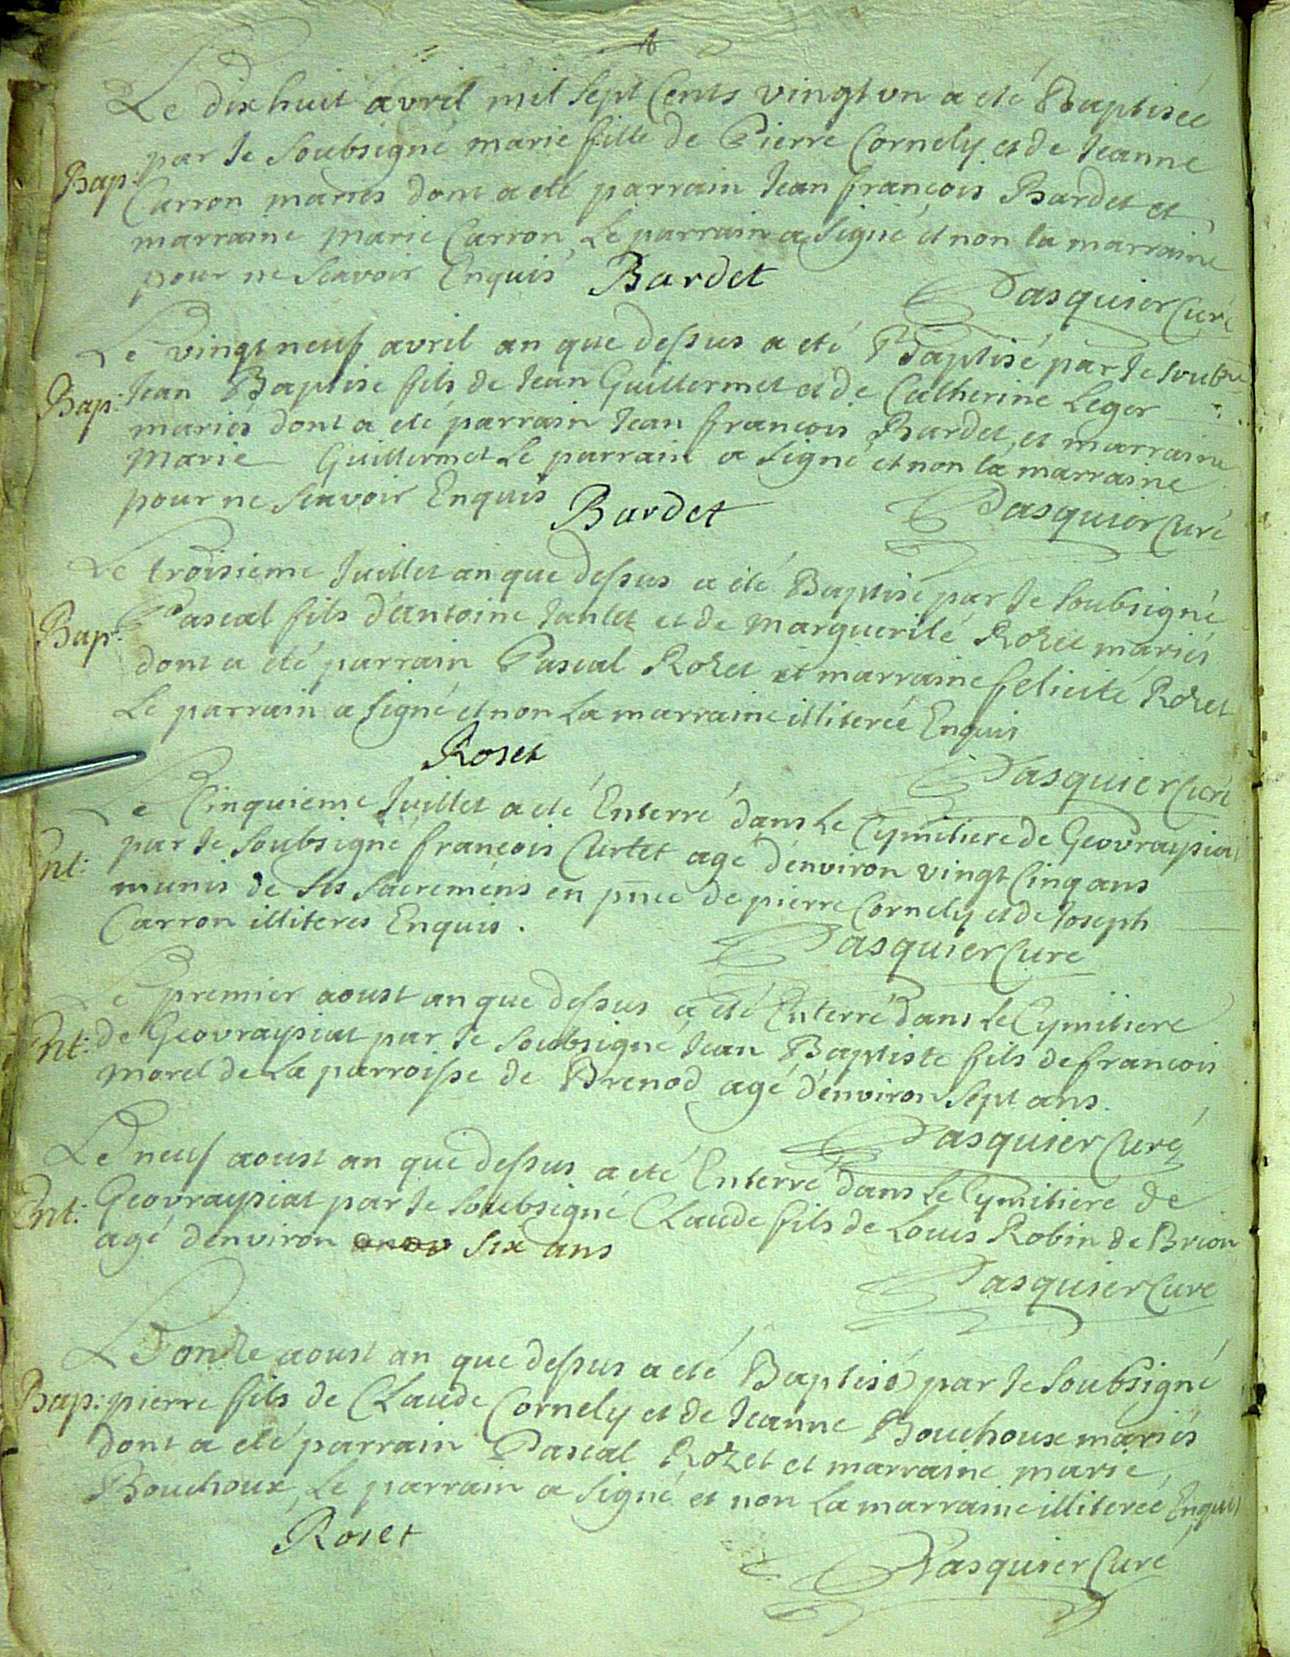 Le dix huit avril mil sept Cents vingt un a eté Baptiseé
par Je soubsigné marie fille de Pierre Cornely et de Jeanne
Bap: Carron mariés dont a eté parrain Jean françois Bardet et
marraine Marie Carron Le parrain a signé et non la marraine
pour ne scavoir Enquis Bardet
Pasquier Curé
Le vingt neuf avril an que dessus a eté Baptisé par Je
Bap: Jean Baptise fils de Jean Guillermet et de Catherine Leger
mariés dont a eté parrain Jean francois Bardet, et marraine
Marie Guillermet Le parrain a signé et non la marraine
pour ne scavoir Enquis Bardet
Pasquier Curé
Le troisieme Juillet an que dessus a été Baptisé par Je soubsigné
Bap: Pascal fils d'Antoine et de Marguerite Rozet mariés
dont a été parrain Pascal Rozet et marraine felicité Rozet
Le parrain a signé et non La marraine illitereé Enquis
Roset
Pasquier Curé
Le Cinquieme Juillet a eté Enterré dans Le Cymitiere de Geovraysiat
Ent: par Je soubsigné francois Curtet agé d'environ vingt Cinq ans
munis de ses sacremens en pnce de pierre Cornely et de Joseph
Carron illiteres Enquis.
Pasquier Curé
Le premier aoust an que dessus a eté Enterré dans Le Cymitiere
Ent: de Geovraysiat par Je soubsigné Jean Baptiste fils de francois
Morel de La parroisse de Brenod agé d'environ sept ans.
Pasquier Curé
Le neuf aoust an que dessus a eté Enterré dans Le Cymitiere de
Ent: Geovraysiat par Je soubsigné Claude fils de Louis Robin de Brion
agé d'environ six ans
Pasquier Curé
Le onze aoust an que dessus a eté Baptisé par Je soubsigné
Bap: pierre fils de Claude Cornely et de Jeanne Bouchoux mariés
dont a eté parrain Pascal Rozet et marraine marie
Bouchoux, Le parrain a signé et non La marraine illitereé Enquis
Roset
Pasquier Curé